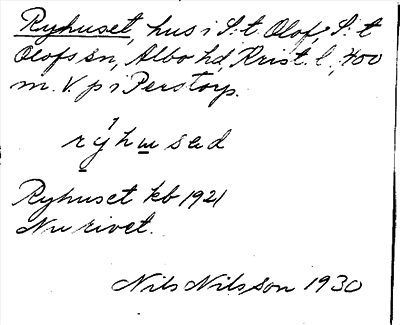 Ryhuset, hus i S:t Olof, S:t
Olofs sn, Albo hd, Krist. l., 400
m. V p i Perstorp.
rýhɯsəd
Ryhuset kb 1921
Nu rivet.
Nils Nilsson 1930